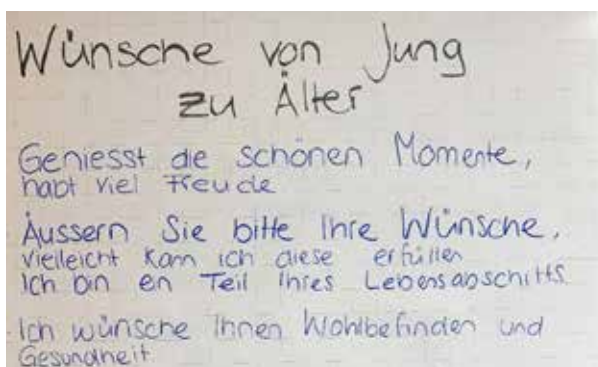 Wünsche von Jung
zu Älter
Geniesst die schönen Momente,
habt viel Freude
Äussern Sie bitte Ihre Wünsche,
vielleicht kann ich diese erfüllen
Ich bin en Teil Ihres Lebensabschitts.
Ich wünsche Ihnen Wohlbefinden und
Gesundheit